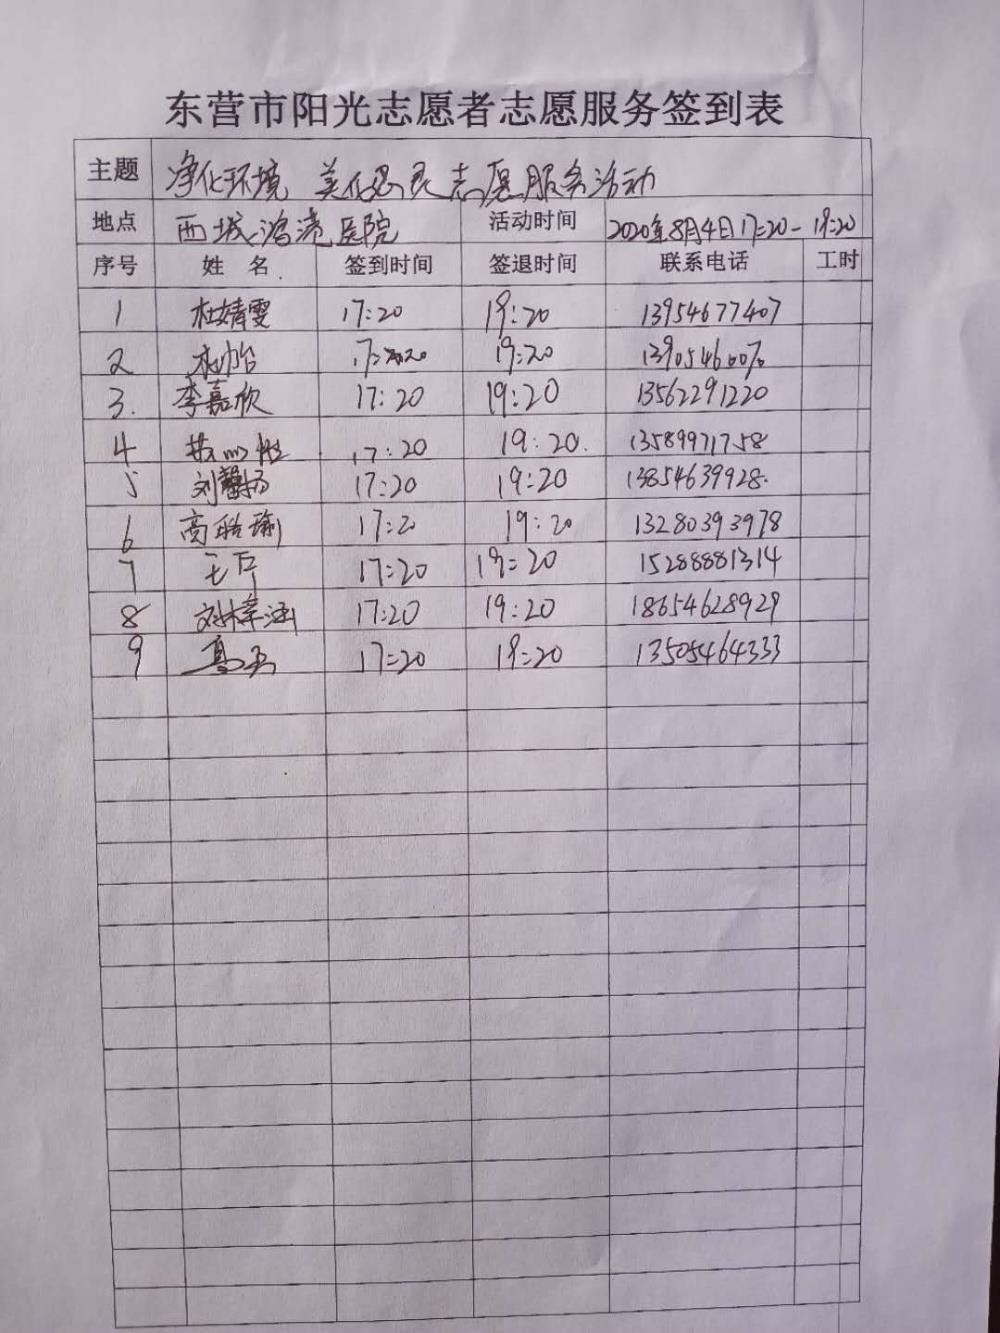 东营市阳光志愿者志愿服务签到表
主题 净化环境 美化心灵志愿服务活动
地点 西城鸿港医院 活动时间 2020年8月4日17:20-19:20
序号 姓名 签到时间 签退时间 联系电话 工时
1 杜婧雯 17:20 19:20 13954677407
2 17:20 19:20
3. 李嘉欣 17:20 19:20 13562291220
4 17:20 19:20. 13589971758
5 刘馨扬 17:20 19:20 13854639928.
6 高 瑜 17:20 19:20 13280393978
7 17:20 19:20 15288881314
8 刘梓涵 17:20 19:20 18654628929
9 17:20 19:20 13505464333